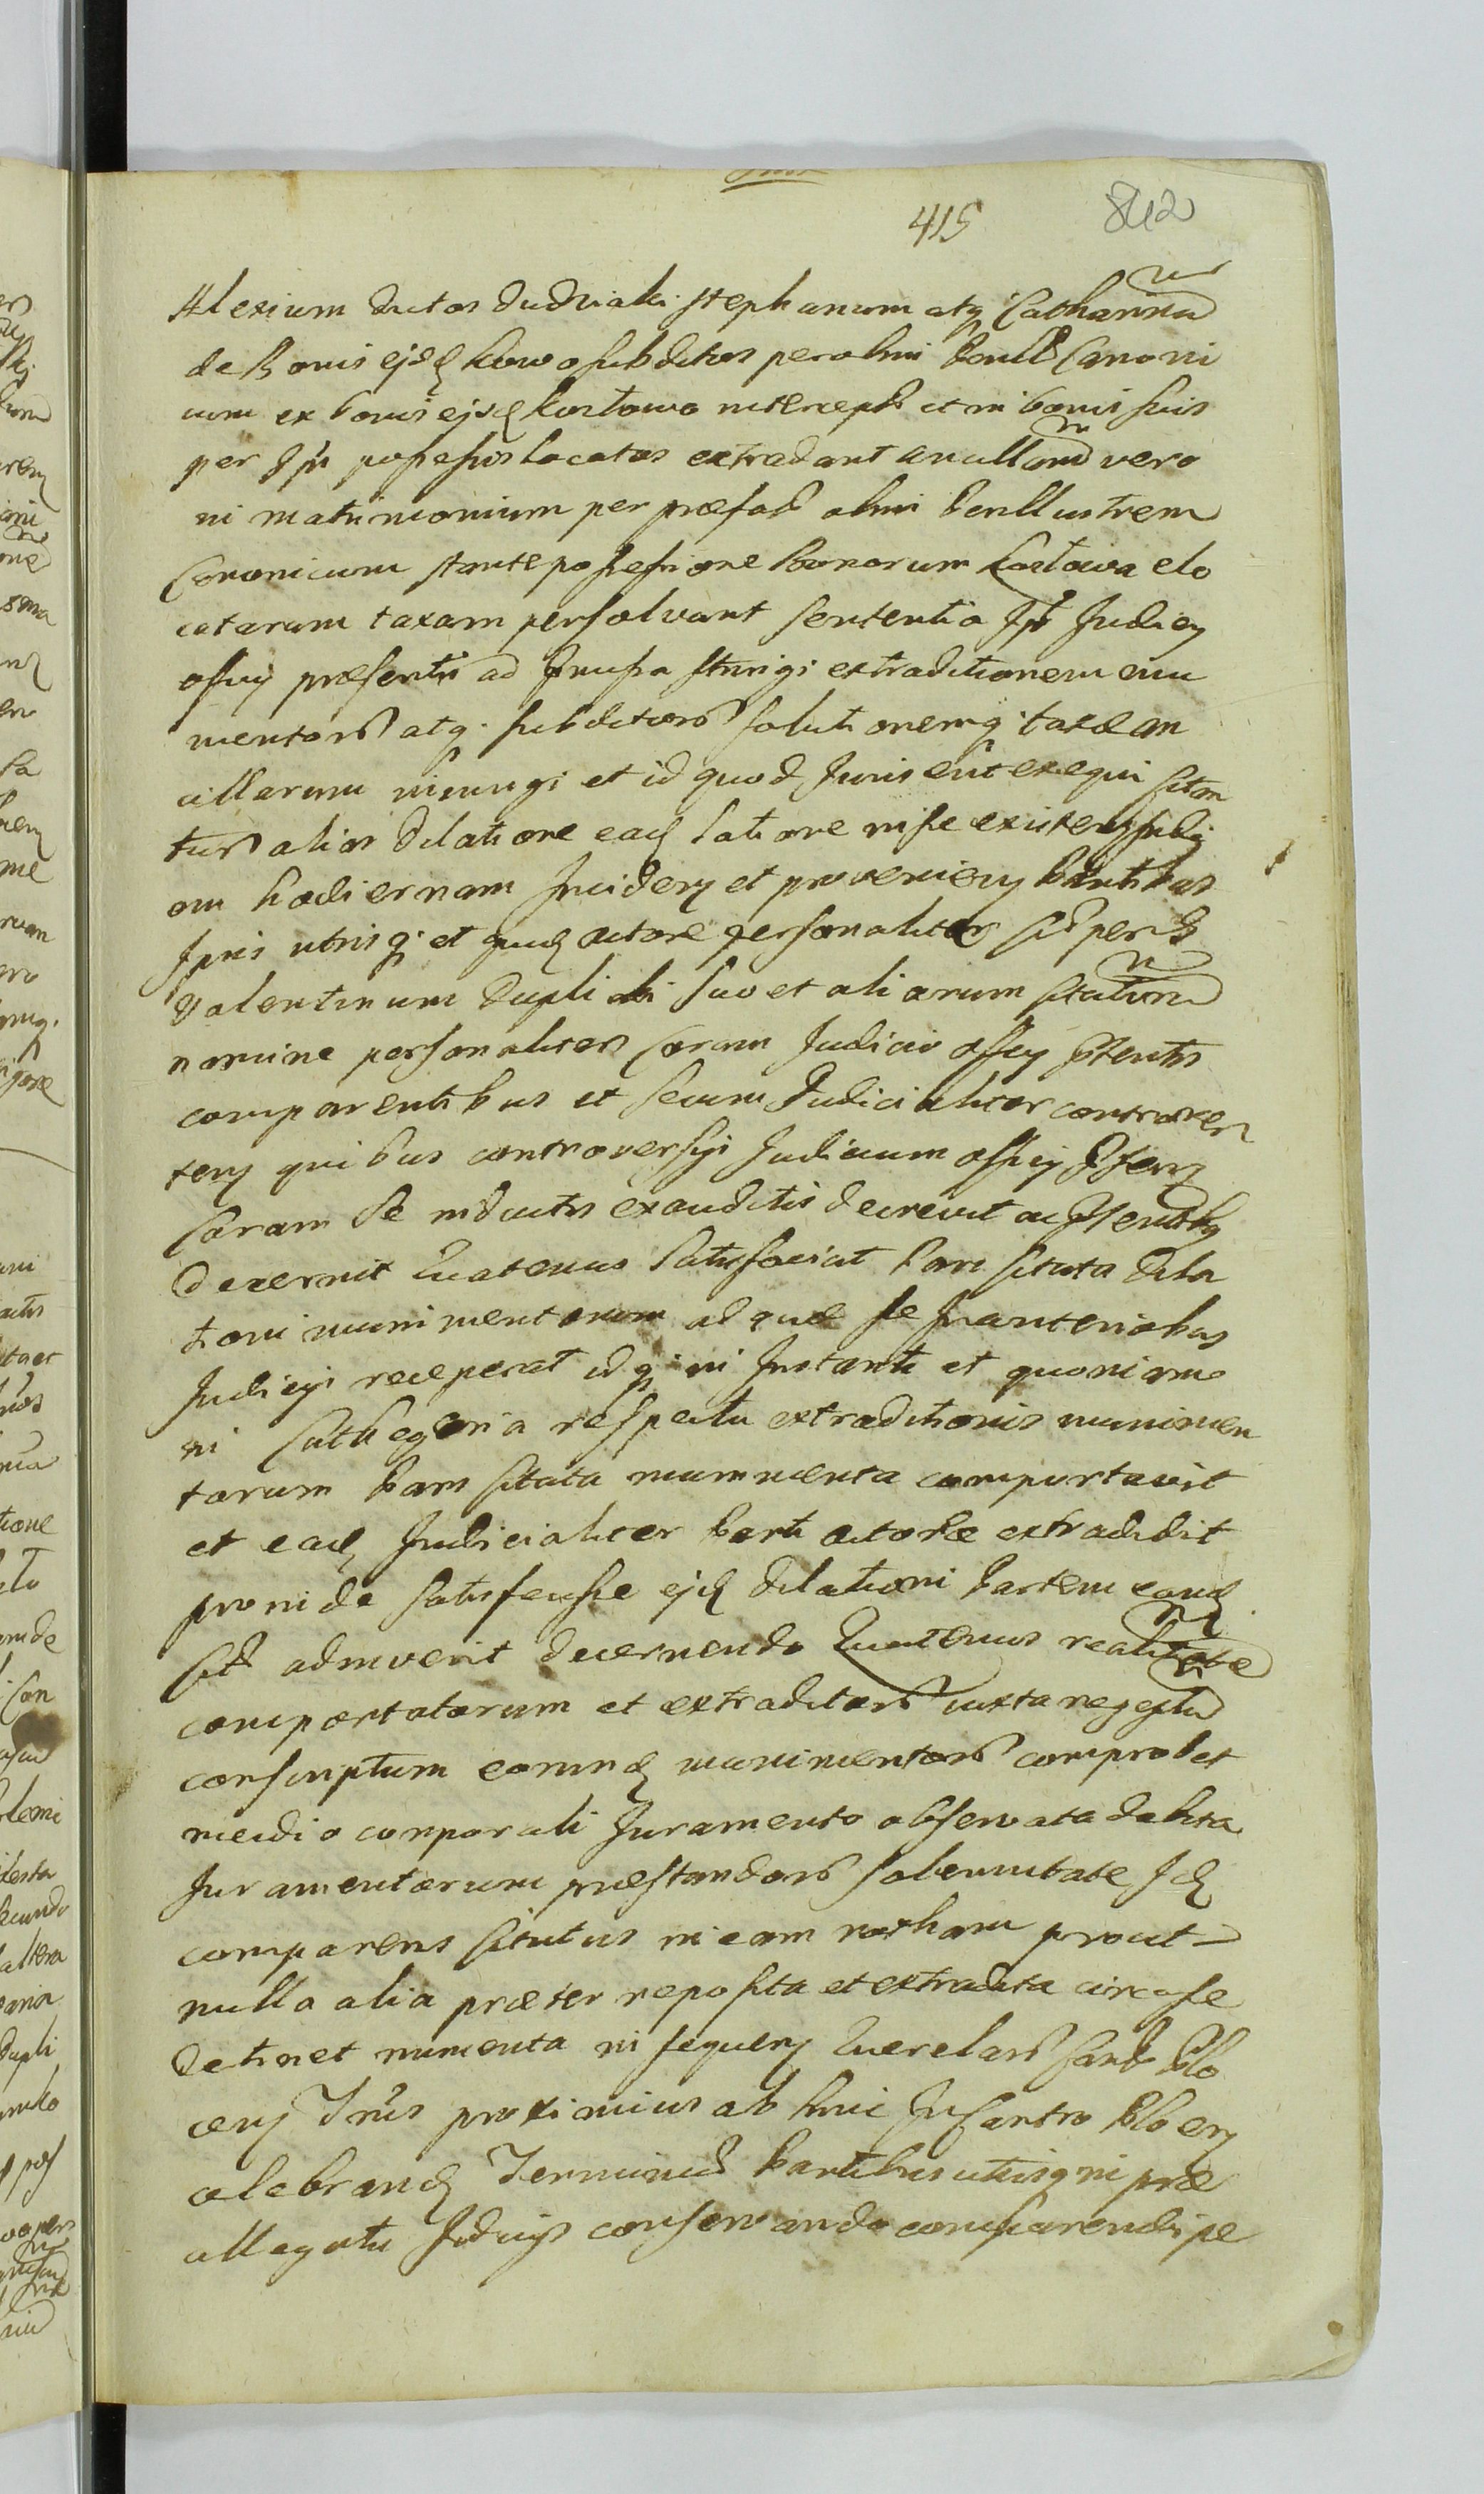 415 842
Alexium dictos Dudziaki Stephanum atq Catharinam
de Bonis ejsd Kowo subditos per olim Perill Canoni
cum ex bonis ejsd Kostowo intercept et in bonis suis
per Ips possessis locatos extradant ancillarum vero
in matrimonium per præfat olim Perillustrem
Canonicum stante possessione Bonorum Kostowa elo
catarum taxam persolvant sententia Ips Judicy
officy præsentis ad præmissa stringi extraditionem mu
mentor atq subditor solutionemq taxæ an
cillarum iniungi et id quod Juris erit exequi citan
tur alias dilatione ead latione
om hodiernam Inciden et provenien Partibus
Ipsis utrisq et quid actore personaliter per G
Valentinum Dupli suo et aliarum citatarum
nomine personaliter coram Judicio officy præsentis
comparentibus et secum Judicialiter controver
ten quibus controversys Judicium officy Præsens
coram se inductis exauditis decrevit ac præsentibq
decernit Quatenus satisfaciat Pars citata dila
tioni munimentorum ad quæ se in anterioribus
Judicys receperat idq in Instanti et quoniam
in cathegoria respectu extraditionis munimen
torum Pars citata munimenta comportavit
et ead Judicialiter Parti actoreæ extradidit
proinde satisfecisse ejsd dilationi Partem eand
citt adinvenit decernendo Quatenus realitate
comportatorum et extraditor iuxta regestrum
conscriptum eorund munimentor comprobet
medio corporali Juramento observata debita
Juramentorum præstandor solennitate Id
comparens citatus in eam rotham prout
nulla alia præter reposita et extradita circa se
detinet munimenta in sequen Querelar Cast Plo
cen Trnis proximius ab hinc In Castro Plocen
celebrand Terminum Partibus utrisq in præ
allegatis Judicys conservando comparendi pe